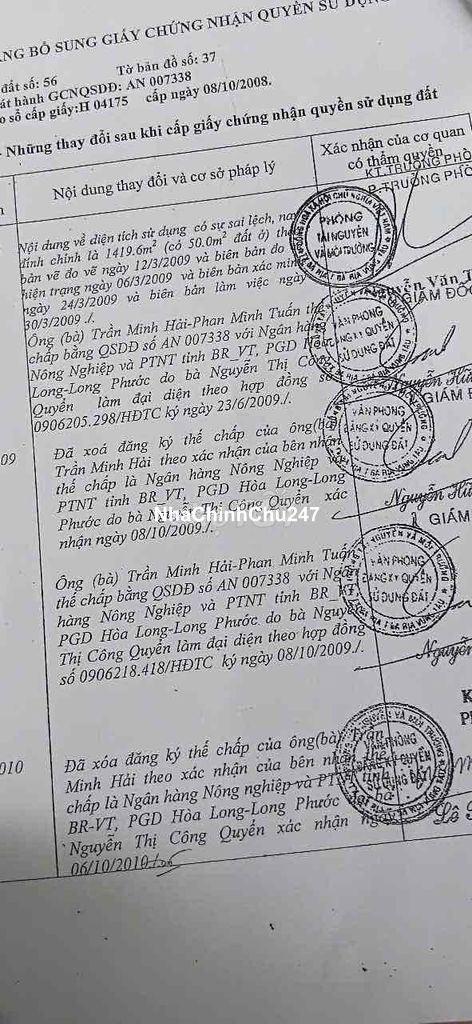 ANG BỔ SUNG GIẤY CHỨNG NHẬN QUYỀN SỬ DỤNG
đất số: 56
Tờ bản đồ số: 37
át hành GCNQSDĐ: AN 007338
o sổ cấp giấy:H 04175 cấp ngày 08/10/2008.
- Những thay đổi sau khi cấp giấy chứng nhận quyền sử dụng đất
Nội dung thay đổi và cơ sở pháp lý
Xác nhận của cơ quan
có thẩm quyền
KT.TRƯỞNG PHÒ
P.TRƯỞNG PHÒ
Nội dung về diện tích sử dụng có sự sai lệch, na
đính chính là 1419.6m² (có 50.0m² đất ở) th
bản vẽ do vẽ ngày 12/3/2009 và biên bản đo
hiện trạng ngày 06/3/2009 và biên bản xác min
ngày 24/3/2009 và biên bản làm việc ngày
30/3/2009 ./.
PHÒNG
TÀI NGUYÊN
VÀ MÔI TRƯỜNG
Nguyễn Văn T
Ông (bà) Trần Minh Hải-Phan Minh Tuấn th
chấp bằng QSDĐ số AN 007338 với Ngân hàn
Nông Nghiệp và PTNT tỉnh BR_VT, PGD
Long-Long Phước do bà Nguyễn Thị Côn
Quyền làm đại diện theo hợp đồng số
0906205.298/HĐTC ký ngày 23/6/2009./.
GIÁM ĐỐC
VĂN PHÒNG
ĐĂNG KÝ QUYỀN
SỬ DỤNG ĐẤT
09
Đã xoá đăng ký thế chấp của ông(bà
Trần Minh Hải theo xác nhận của bên nhận
thế chấp là Ngân hàng Nông Nghiệp và
PTNT tỉnh BR_VT, PGD Hòa Long-Long
Phước do bà Nguyễn Thị Công Quyền xác
nhận ngày 08/10/2009./.
GIÁM Đ
VĂN PHÒNG
ĐĂNG KÝ QUYỀN
SỬ DỤNG ĐẤT
Nguyễn Hữ
NhaChinhChu247
GIÁM
Ông (bà) Trần Minh Hải-Phan Minh Tuấn
thế chấp bằng QSDĐ số AN 007338 với Ngân
hàng Nông Nghiệp và PTNT tỉnh BR_
PGD Hòa Long-Long Phước do bà Nguyễ
Thị Công Quyền làm đại diện theo hợp đồng
số 0906218.418/HĐTC ký ngày 08/10/2009./.
VĂN PHÒNG
ĐĂNG KÝ QUYỀN
SỬ DỤNG ĐẤT
Nguyễn
010
Đã xóa đăng ký thế chấp của ông(bà) Trần
Minh Hải theo xác nhận của bên nhận thế
chấp là Ngân hàng Nông nghiệp và PTNT tỉnh
BR-VT, PGD Hòa Long-Long Phước
Nguyễn Thị Công Quyền xác nhận ngày
06/10/2010./.
VĂN PHÒNG
ĐĂNG KÝ QUYỀN
SỬ DỤNG ĐẤT
Lê